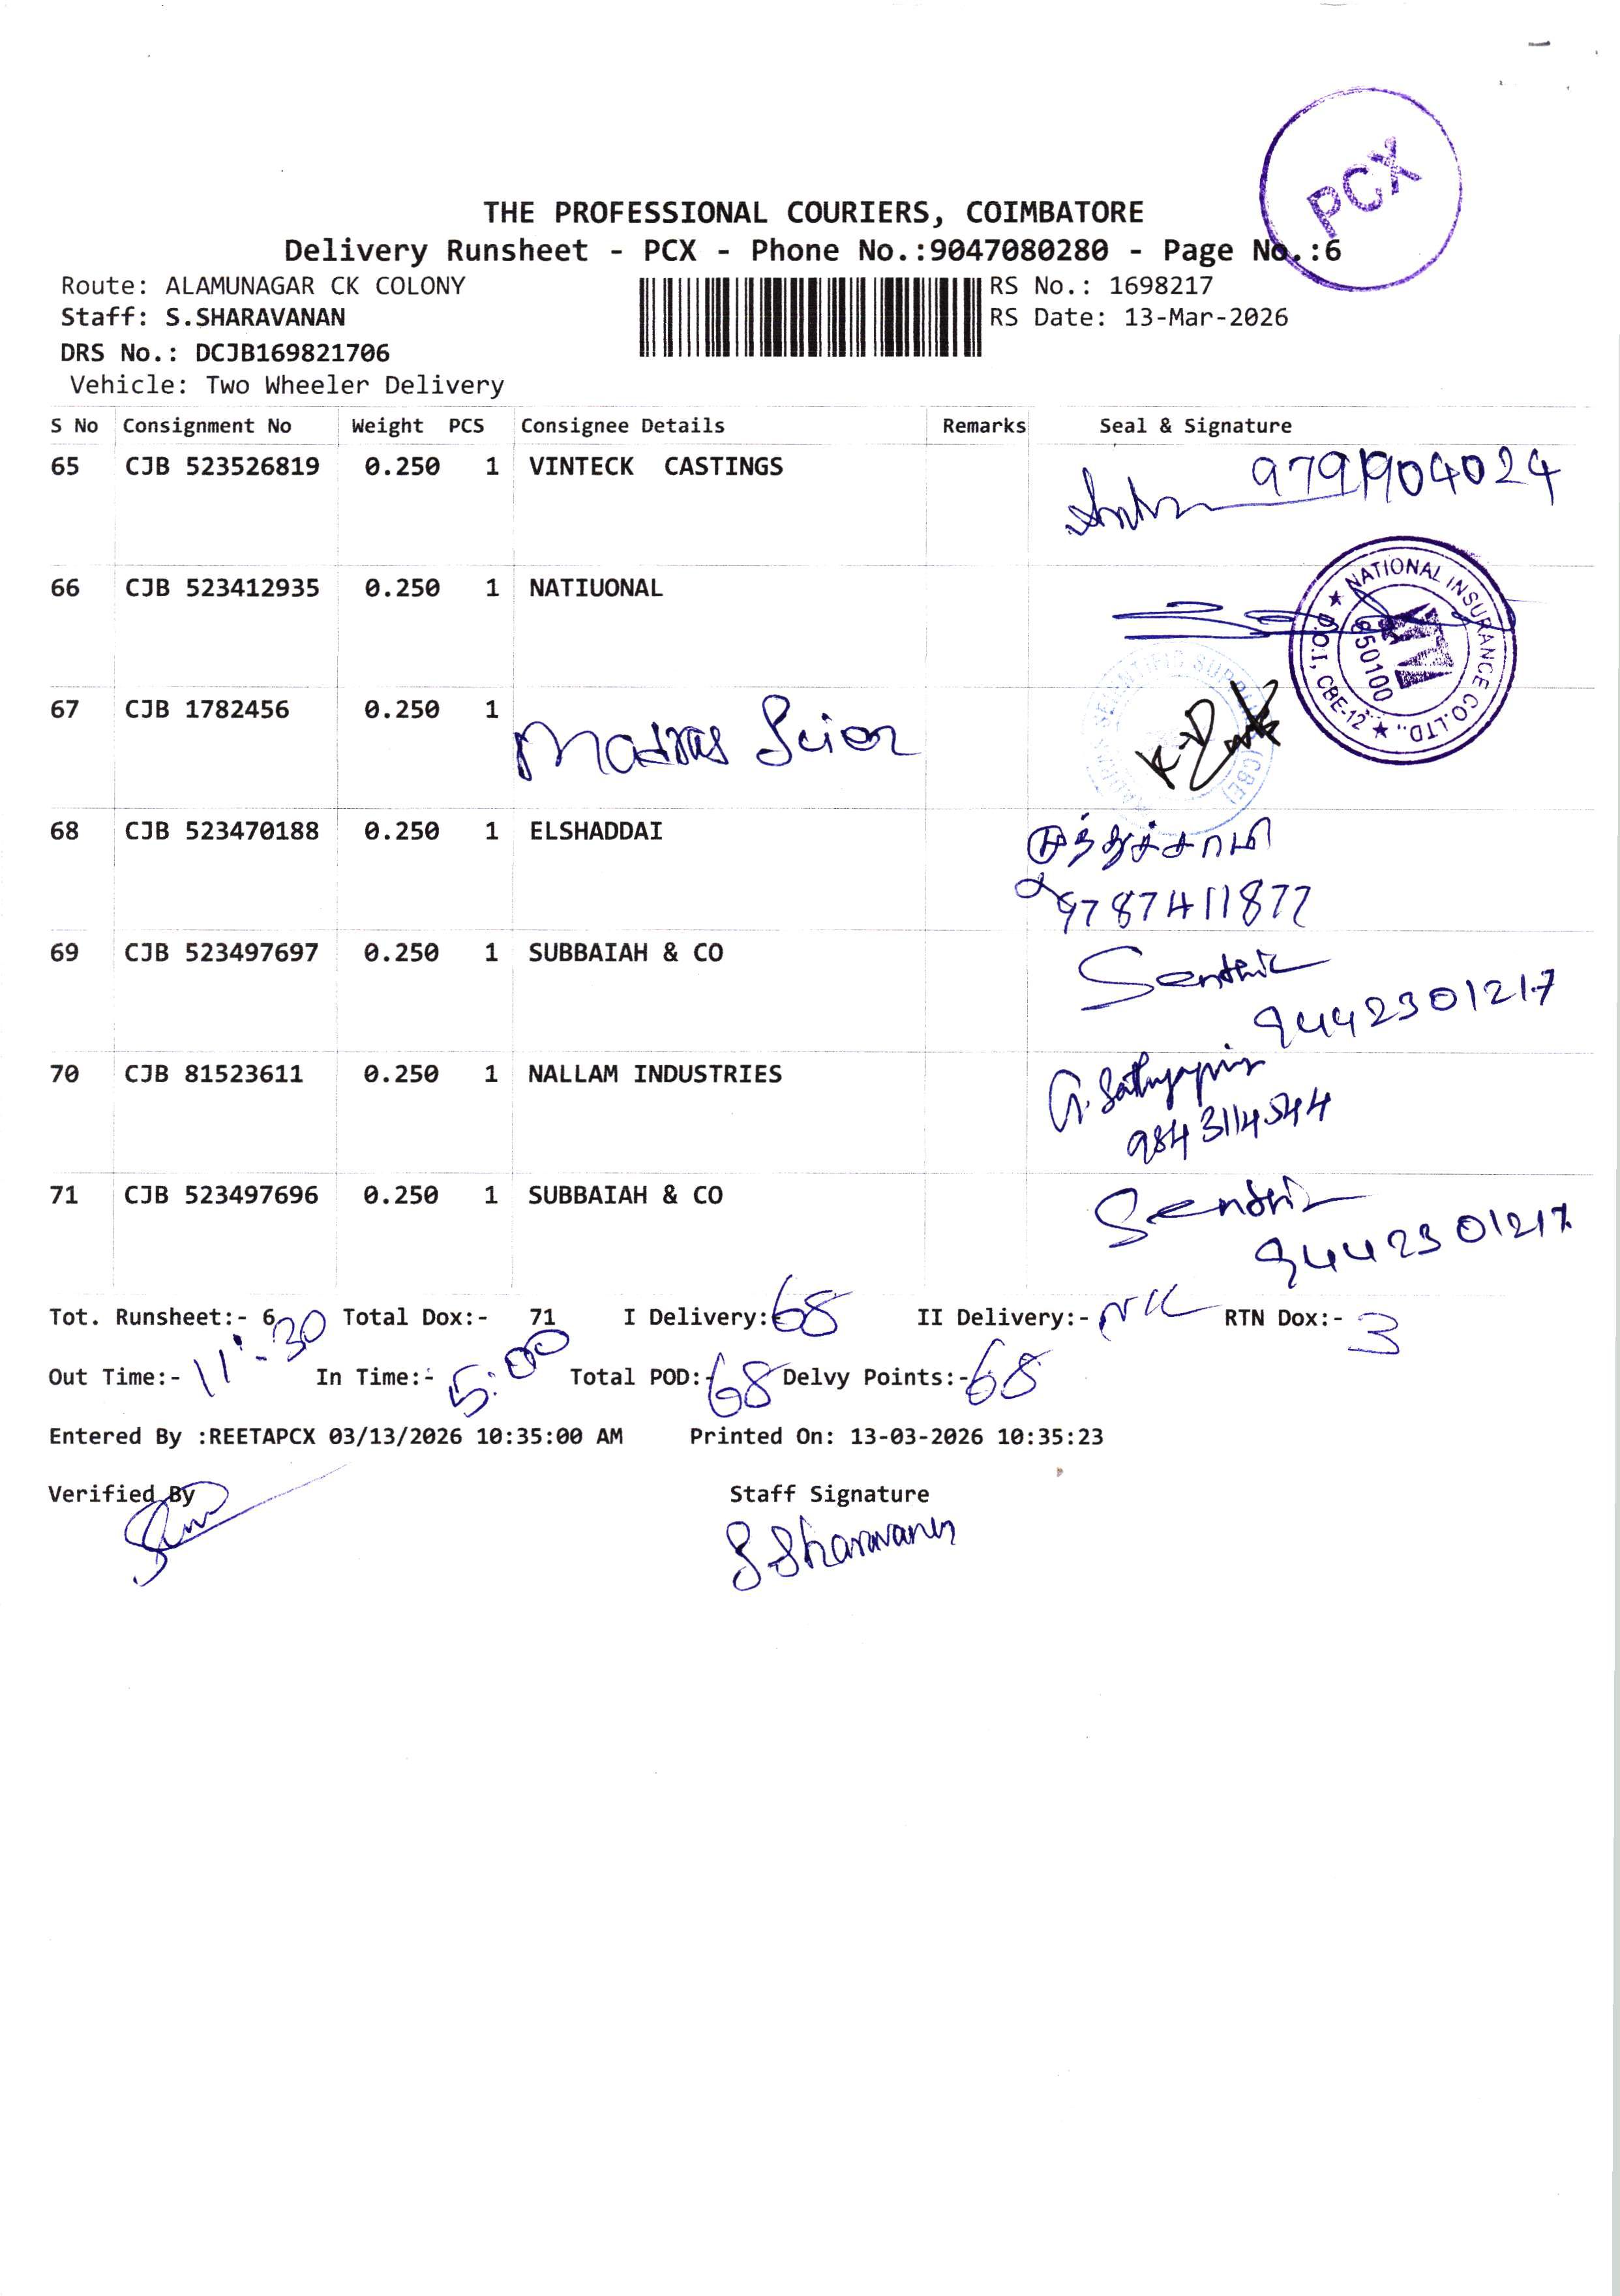 PCX
THE PROFESSIONAL COURIERS, COIMBATORE
Delivery Runsheet - PCX - Phone No.:9047080280 - Page No.:6
Route: ALAMUNAGAR CK COLONY
RS No.: 1698217
Staff: S.SHARAVANAN
RS Date: 13-Mar-2026
DRS No.: DCJB169821706
Vehicle: Two Wheeler Delivery
S No Consignment No Weight PCS Consignee Details Remarks Seal & Signature
65 CJB 523526819 0.250 1 VINTECK CASTINGS 9791904024
66 CJB 523412935 0.250 1 NATIUONAL
★ NATIONAL INSURANCE CO.LTD., ★ D.O.I, CBE-12
650100
67 CJB 1782456 0.250 1 Madras Scien
68 CJB 523470188 0.250 1 ELSHADDAI முத்துச்சாமி
9787411877
69 CJB 523497697 0.250 1 SUBBAIAH & CO Senthil
9442301217
70 CJB 81523611 0.250 1 NALLAM INDUSTRIES G. Sathyapriya
9843114544
71 CJB 523497696 0.250 1 SUBBAIAH & CO Senthil
9442301217
Tot. Runsheet:- 6 Total Dox:- 71 I Delivery:- 68 II Delivery:- NIL RTN Dox:- 3
Out Time:- 11:30 In Time:- 5:00 Total POD:- 68 Delvy Points:- 68
Entered By :REETAPCX 03/13/2026 10:35:00 AM Printed On: 13-03-2026 10:35:23
Verified By Staff Signature
S Sharavanan